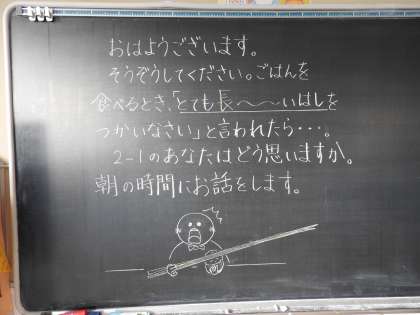 おはようございます。
そうぞうしてください。ごはんを
食べるとき、「とても長〜〜いはしを
つかいなさい」と言われたら・・・。
2-1のあなたはどう思いますか。
朝の時間にお話をします。